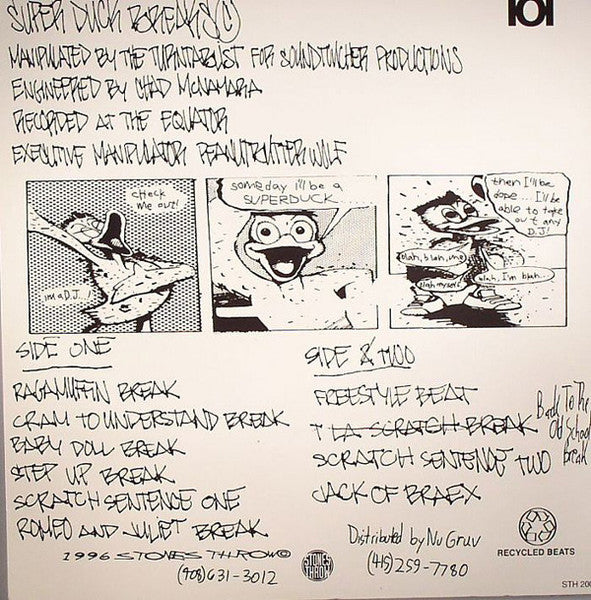 SUPER DUCK BREAKS ©
101
MANIPULATED BY THE TURNTABLIST FOR SOUNDTUNCHER PRODUCTIONS
ENGINEERED BY CHAD MCNAMARA
RECORDED AT THE EQUATOR
EXECUTIVE MANIPULATOR PEANUTBUTTERWOLF
check me out!
im a D.J.
someday i'll be a
SUPERDUCK
then I'll be
dope... I'll be
able to take
out any
D.J.!
blah, blah, me
blah, I'm blah
blah myself
SIDE ONE
RAGAMUFFIN BREAK
CRAM TO UNDERSTAND BREAK
BABY DOLL BREAK
STEP UP BREAK
SCRATCH SENTENCE ONE
ROMEO AND JULIET BREAK
SIDE TWO
FREESTYLE BEAT
T LA SCRATCH BREAK
Back To The
Old School
Break
SCRATCH SENTENCE TWO
JACK OF BRAEX
1996 STONES THROW ©
(408) 631-3012
STONES THROW
Distributed by Nu Gruv
(415) 259-7780
RECYCLED BEATS
STH 200